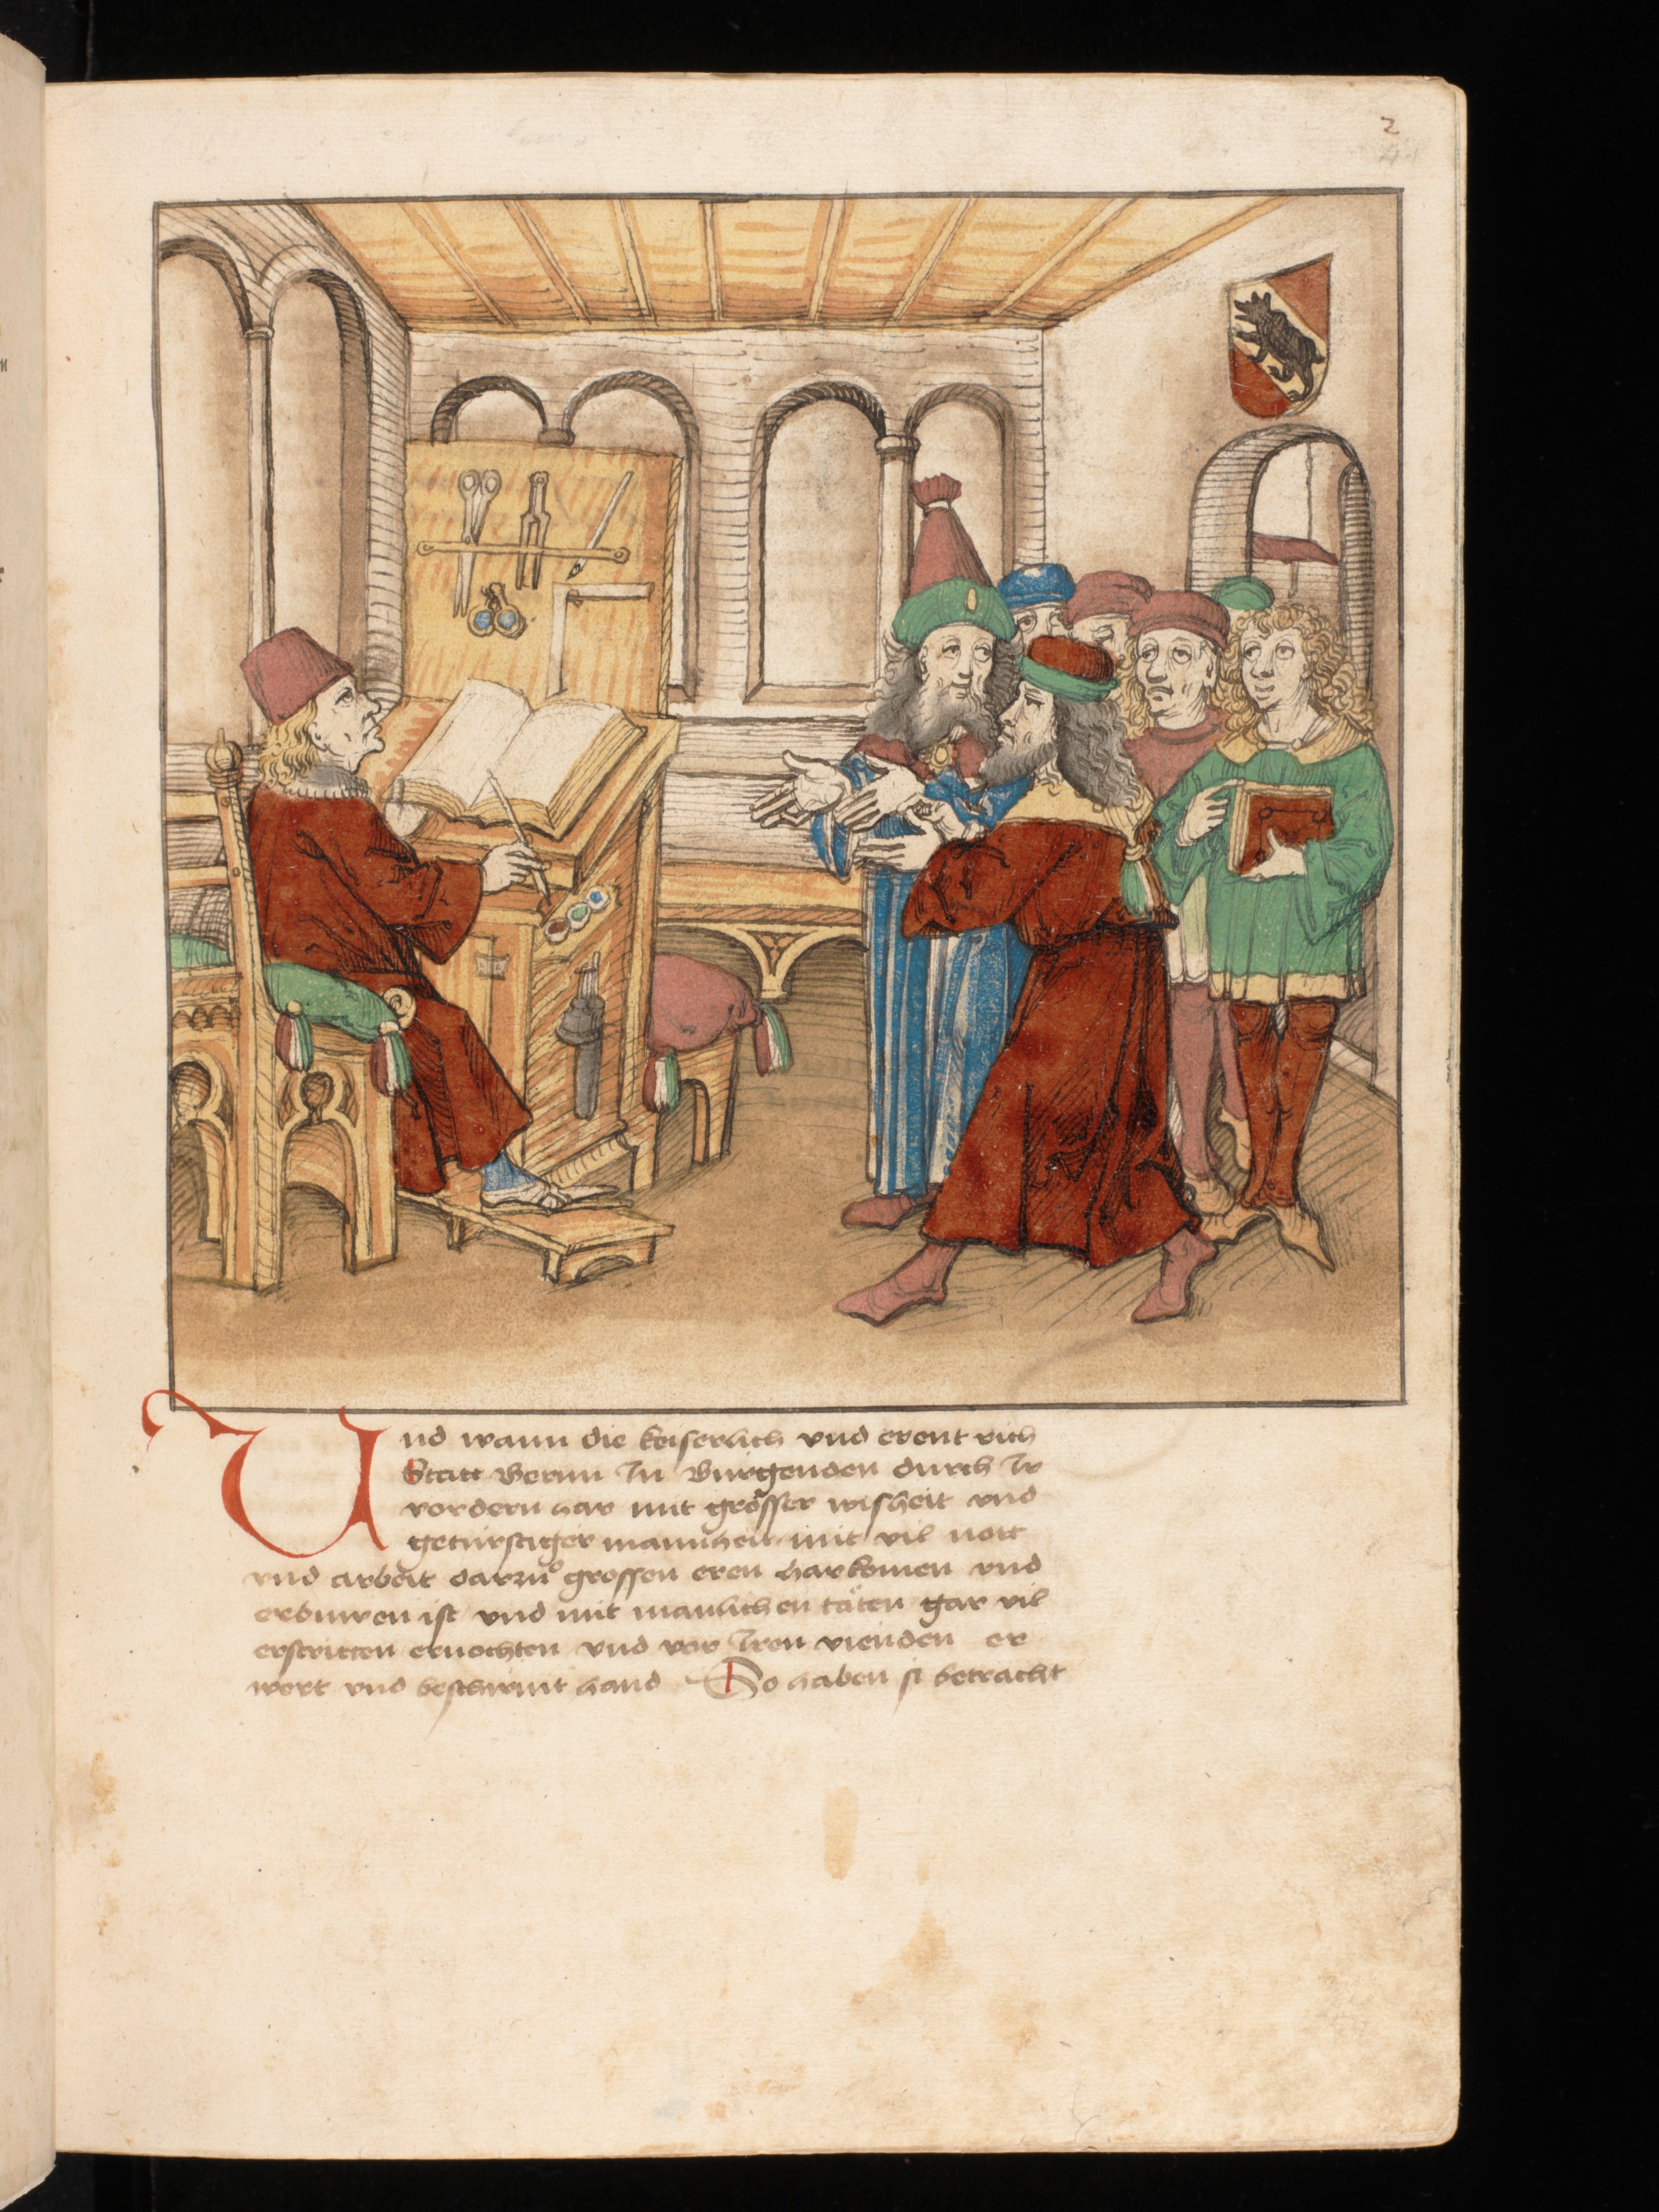 2
Und wann die keiserlich vnd erent rich
Statt Bernn In Burgenden durch Ir
vordern har mit grösser wisheit vnd
getürstiger mannheit mit vil nott
vnd arbeit darzuͦ grossen eren harkomen vnd
erbuwen ist vnd mit manlichen täten gar vil
erstritten eruochten vnd vor Iren vienden er
wert vnd beschirmt hand So haben si betracht